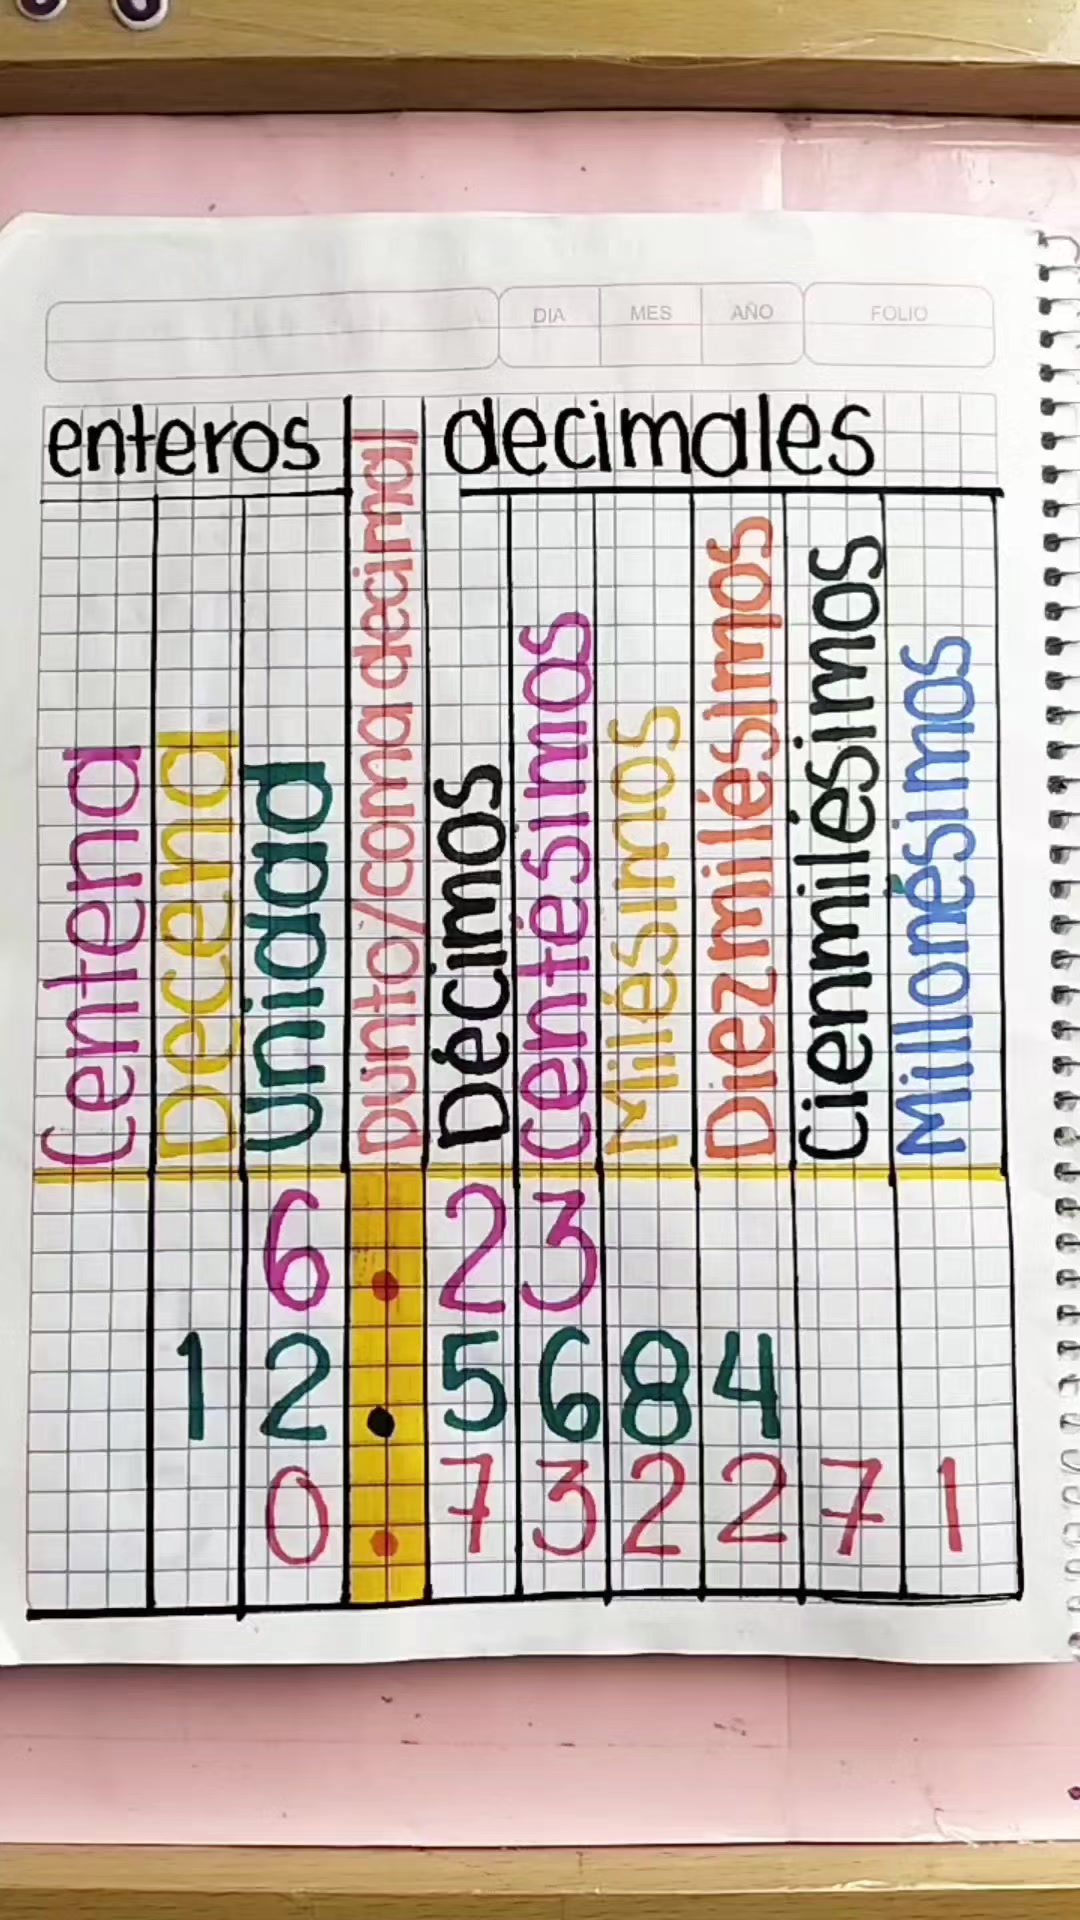 DIA MES AÑO FOLIO
enteros
decimales
Centena
Decena
Unidad
punto/coma decimal
Décimos
centésimos
Milésimos
Diezmilésimos
Cienmilésimos
Millonésimos
6 . 2 3
1 2 . 5 6 8 4
0 . 7 3 2 2 7 1